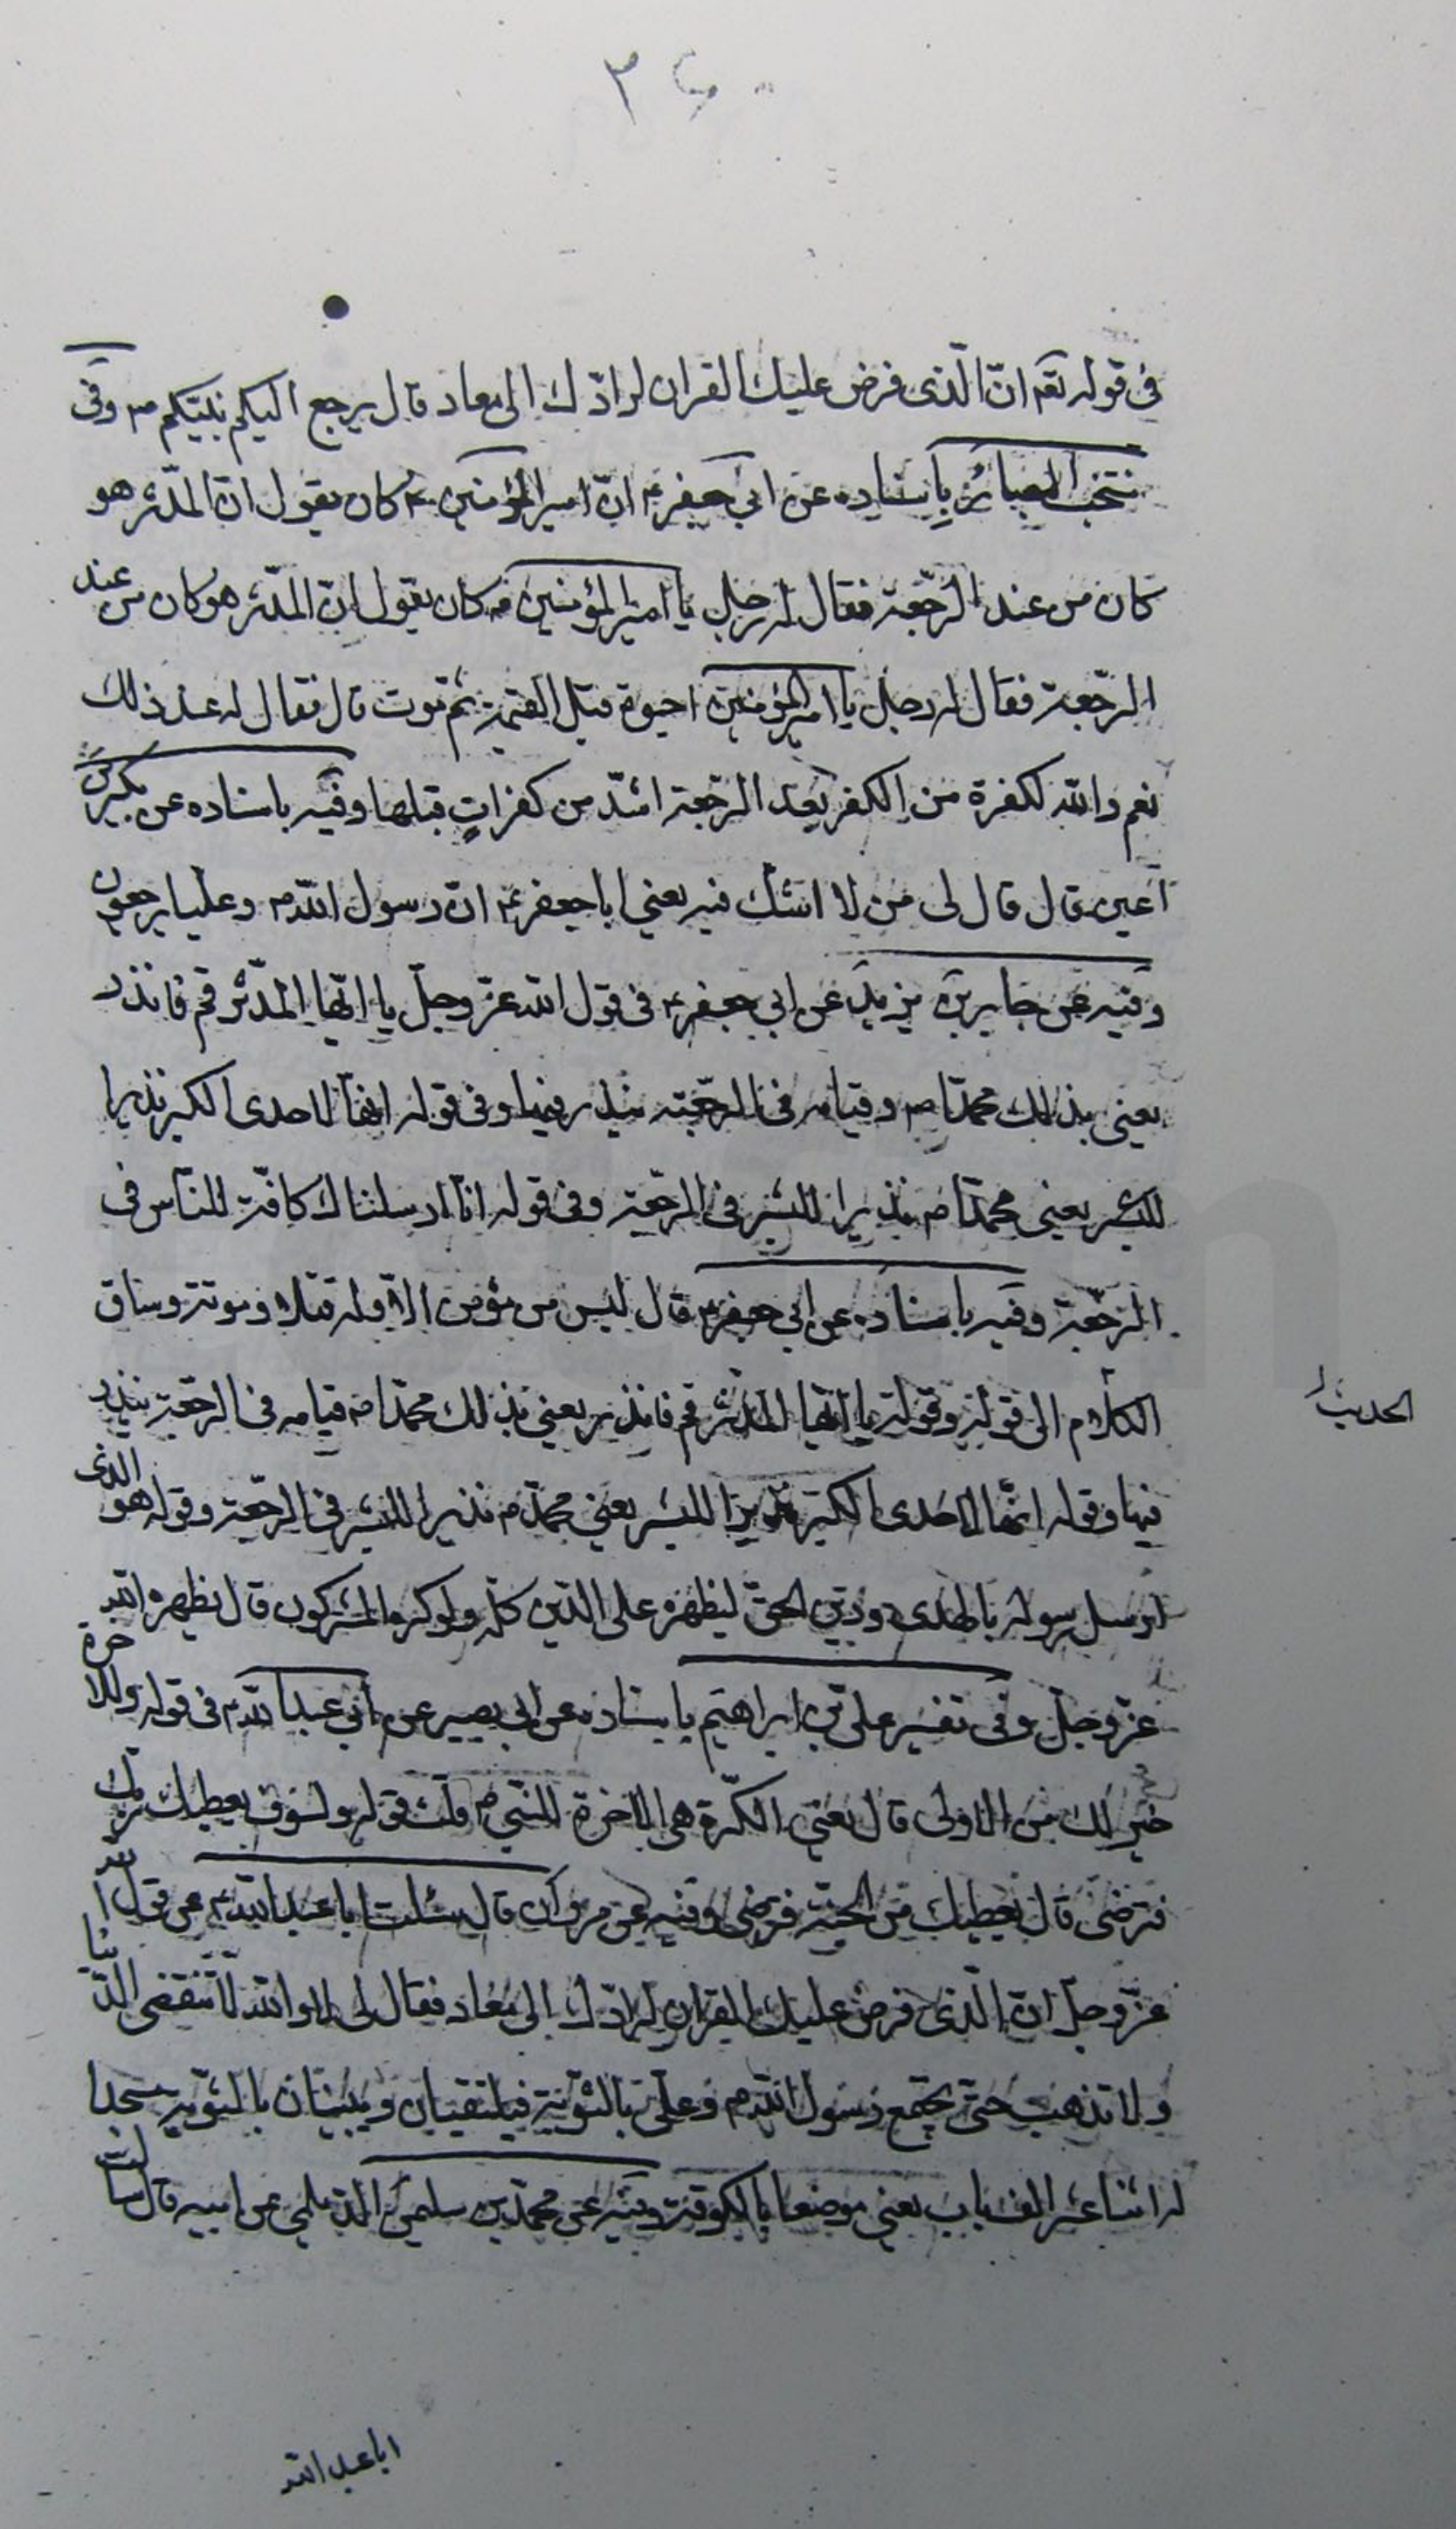 ٣٤٠
فى قوله تعم انّ الّذى فرض عليك القران لرادّك الى معاد قال يرجع اليكم نبيّكم ص وفى
منتخب البصائر باسناده عن ابي جعفر ع انّ امير المؤمنين ع كان يقول انّ المدّثر هو
كان من عند الرّجعة فقال له رجل يا امير المؤمنين فه كان يقول انّ المدّثر هو كان من عند
الرّجعة فقال له رجل يا امير المؤمنين احيوة قبل القيمة ثم موت قال فقال له عند ذلك
نعم والله لكفرة من الكفر بعد الرّجعة اشدّ من كفرات قبلها وفيه باسناده عن بكير بن
اعين قال قال لى من لا اشك فيه يعني ابا جعفر ع ان رسول الله ص وعليا يرجعون
وفيه عن جابر بن يزيد عن ابي جعفر ع فى قول الله عزّ وجلّ يا ايّها المدّثر قم فانذر
يعني بذلك محمّدا ص وقيامه فى الرّجعة ينذر فيها وفى قوله انها لاحدى الكبر نذيرا
للبشر يعني محمّدا ص نذيرا للبشر فى الرّجعة وفى قوله انّا ارسلناك كافّة للنّاس فى
الرّجعة وفيه باسناده عن ابي جعفر ع قال ليس من مؤمن الا وله قتلة وموتة وساق
الكلام الى قوله وقوله يا ايّها المدّثر قم فانذر يعني بذلك محمّدا ص قيامه فى الرّجعة ينذر
الحديث
فيها وقوله انّها لاحدى الكبر نذيرا للبشر يعني محمّد ص نذيرا للبشر فى الرّجعة وقوله هو الذى
ارسل رسوله بالهدى ودين الحقّ ليظهره على الدّين كلّه ولو كره المشركون قال يظهره الله
عزّ وجلّ وفى تفسير علىّ بن ابراهيم باسناده عن ابي بصير عن ابي عبد الله ع فى قوله وللاخرة
خير لك من الاولى قال يعني الكرّة هى الاخرة للنّبي ص قلت قوله ولسوف يعطيك ربّك
فترضى قال يعطيك من الجنّة فترضى وفيه عن مروان قال سئلت ابا عبد الله ع عن قول الله
عزّ وجلّ انّ الّذى فرض عليك القران لرادّك الى معاد فقال لى لا والله لا تنقضى الدّنيا
ولا تذهب حتّى يجتمع رسول الله ص وعلىّ بالثّوية فيلتقيان ويبنيان بالثّوية مسجدا
له اثنا عشر الف باب يعني موضعا بالكوفة وفيه عن محمّد بن سليمن الديلمي عن ابيه قال سألت
ابا عبد الله